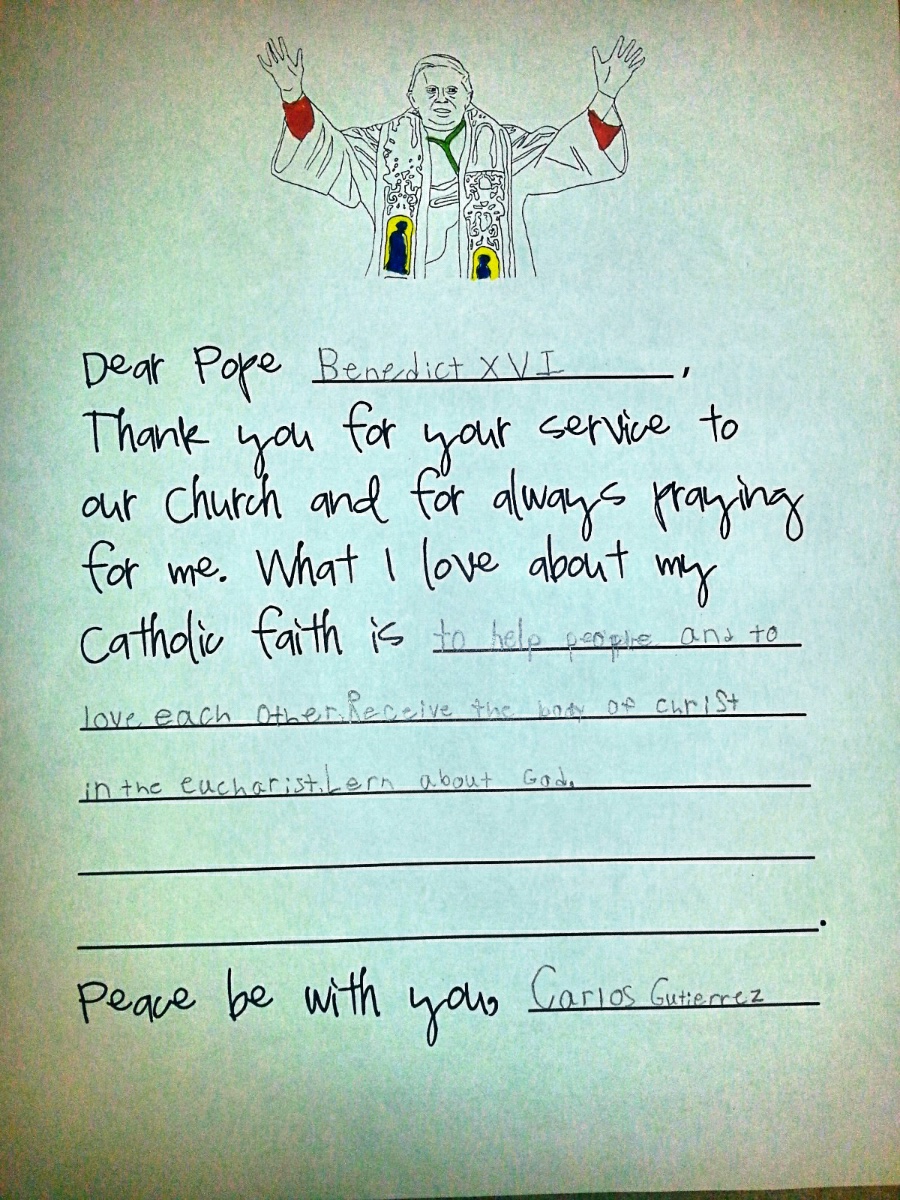 Dear Pope Benedict XVI,
Thank you for your service to
our Church and for always praying
for me. What I love about my
Catholic faith is to help people and to
love each other. Receive the body of christ
in the eucharist. Lern about God.
.
Peace be with you, Carlos Gutierrez